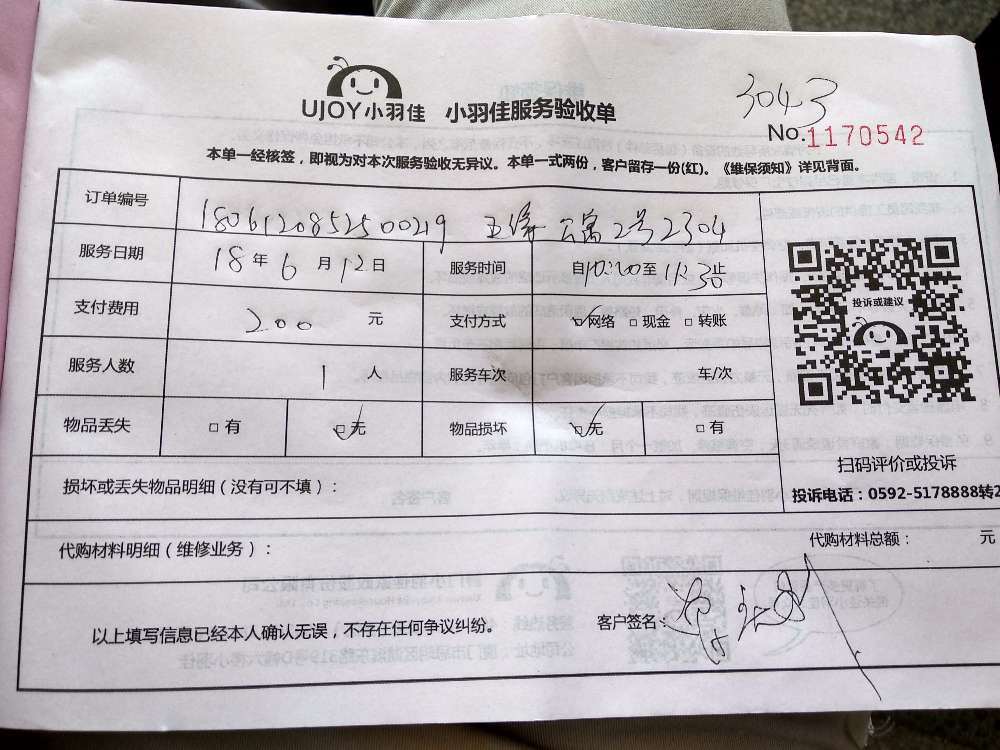 UJOY小羽佳 小羽佳服务验收单
3043
No.1170542
本单一经核签，即视为对本次服务验收无异议。本单一式两份，客户留存一份(红)。《维保须知》详见背面。
订单编号 1806120852500219 2号2304
服务日期 18年6月12日 服务时间 自10:00至11:30止
支付费用 200元 支付方式 ☑网络 □现金 □转账
服务人数 1人 服务车次 车/次
物品丢失 □有 ☑无 物品损坏 ☑无 □有
投诉或建议
扫码评价或投诉
投诉电话：0592-5178888转2
损坏或丢失物品明细（没有可不填）：
代购材料明细（维修业务）： 代购材料总额： 元
以上填写信息已经本人确认无误，不存在任何争议纠纷。 客户签名：